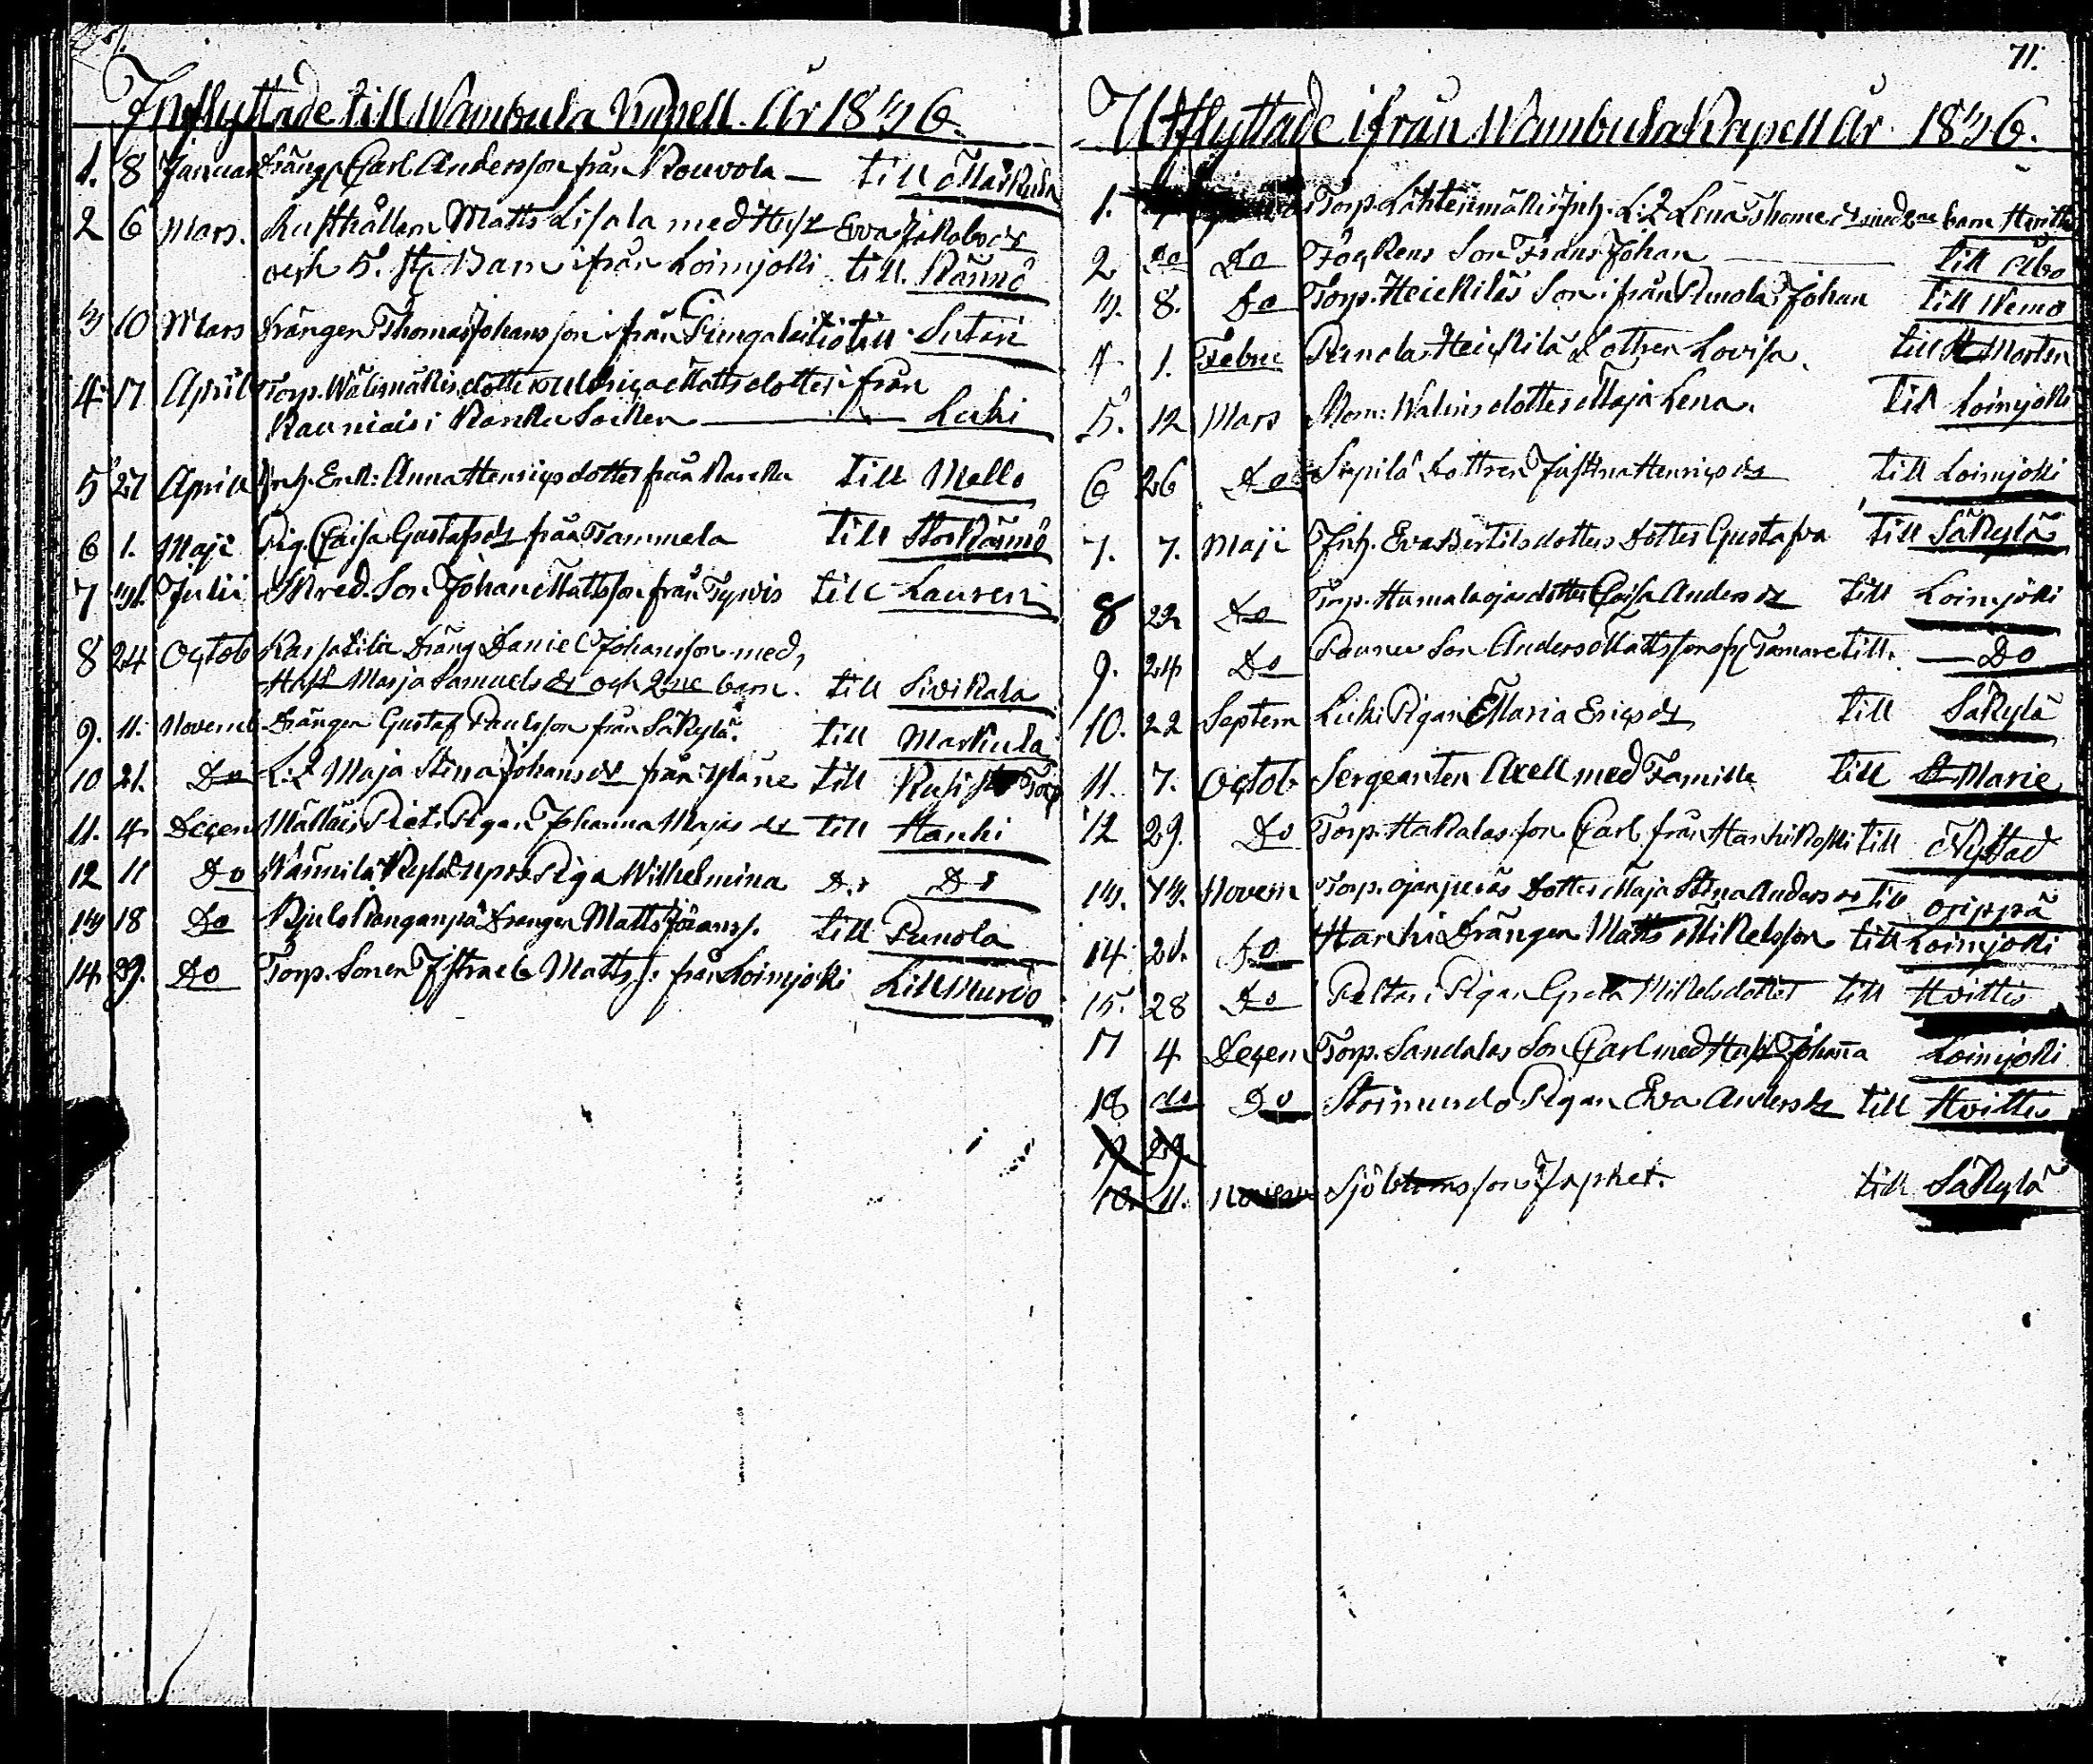 Inflyttade till Wambula Kapell År 1836.
1. 8 Januar Dräng Carl Andersson från Kouvola — till Markula
2 6 Mars. Rusthållern Matts Lisala med Hust Eva Jakobsdr
och 5. st. Barn ifrån Loimjoki till Rännö
3 10 Mars Drängen Thomas Johansson ifrån Pungalaitio till Sutiri
4. 17 April Torp. Wälimäkis dotter Ulrica Matts dotter ifrån
Rauniais i Socken — Luhi
5 27 April Inh. Enk: Anna Henrics dotter från till Mello
6 1. Maji Pig. Caisa Gustafsdr från Tammela till Stor Rännö
7 31. Julii Skred. Son Johan Mattsson från Tyrvis till Lauren
8 24 Octob Dräng Daniel Johansson med
Hust Marja Samuelsdr och 2ne barn. till Sivikala
9. 11. Novemb Drängen Gustaf Paulsson från Säkylä. till Markula
10 21. Do L:2 Maja Stina Johansdr från Yläne till Torp
11. 4. Decem Pigan Johanna Majas dr till Hanhi
12 11 Do Piga Wilhelmina Do Do
13 18 Do Drengen Matts till Punola
14. 29. Do Torp. Sonen Isfrael Matts s. från Loimjoki Lill Murdo
71.
Utflyttade ifrån Wambula Kapell År 1836.
1. Torp. Lähtenmäki Inh. L:2 Lena Thomedr med 2ne barn Hvittis
2 do Do Fockens Son Frans Johan — till Åbo
3. 8. Do Torp. Heickiläs Son ifrån Punola Johan till Nemo
4 1. Febru Punola Heickilä Dottren Lovisa. till St Marten
5. 12 Mars Mom: Walins dotter Maja Lena. till Loimjoki
6 26 Do Sepilä Dottren Justina Henricsdr till Loimjoki
7. 7. Maji Inh. Eva Bertils dotters Dotter Gustafva till Säkylä
8 22 Do Torp. Humalaojas dotter Caisa Andersdr till Loimjoki
9. 24 Do Son Anders Mattsson till. — Do
10. 22 Septem Luhi Pigan Maria Ericsdr till Säkylä
11. 7. Octob Sergeanten Axell med Famille till St Marie
12 29. Do Torp. Hakalas son Carl från Hanhikoski till Nystad
13. 13. Novem Torp. Ojanperäs Dotter Maja Stina Andersdr till Oripää
14 21. Do Hanhi Drängen Matts Mikelsson till Loimjoki
15. 28 Do Peltari Pigan Greta Mikelsdotter till Hvittis
17 4 Decem Torp. Sandalas Son Carl med Hust Johanna Loimjoki
18 do Do Stormurdo Pigan Eva Andersdr till Hvittis
19 29.
18. 11. Novem Sjöblomsson Japhet. till Säkylä